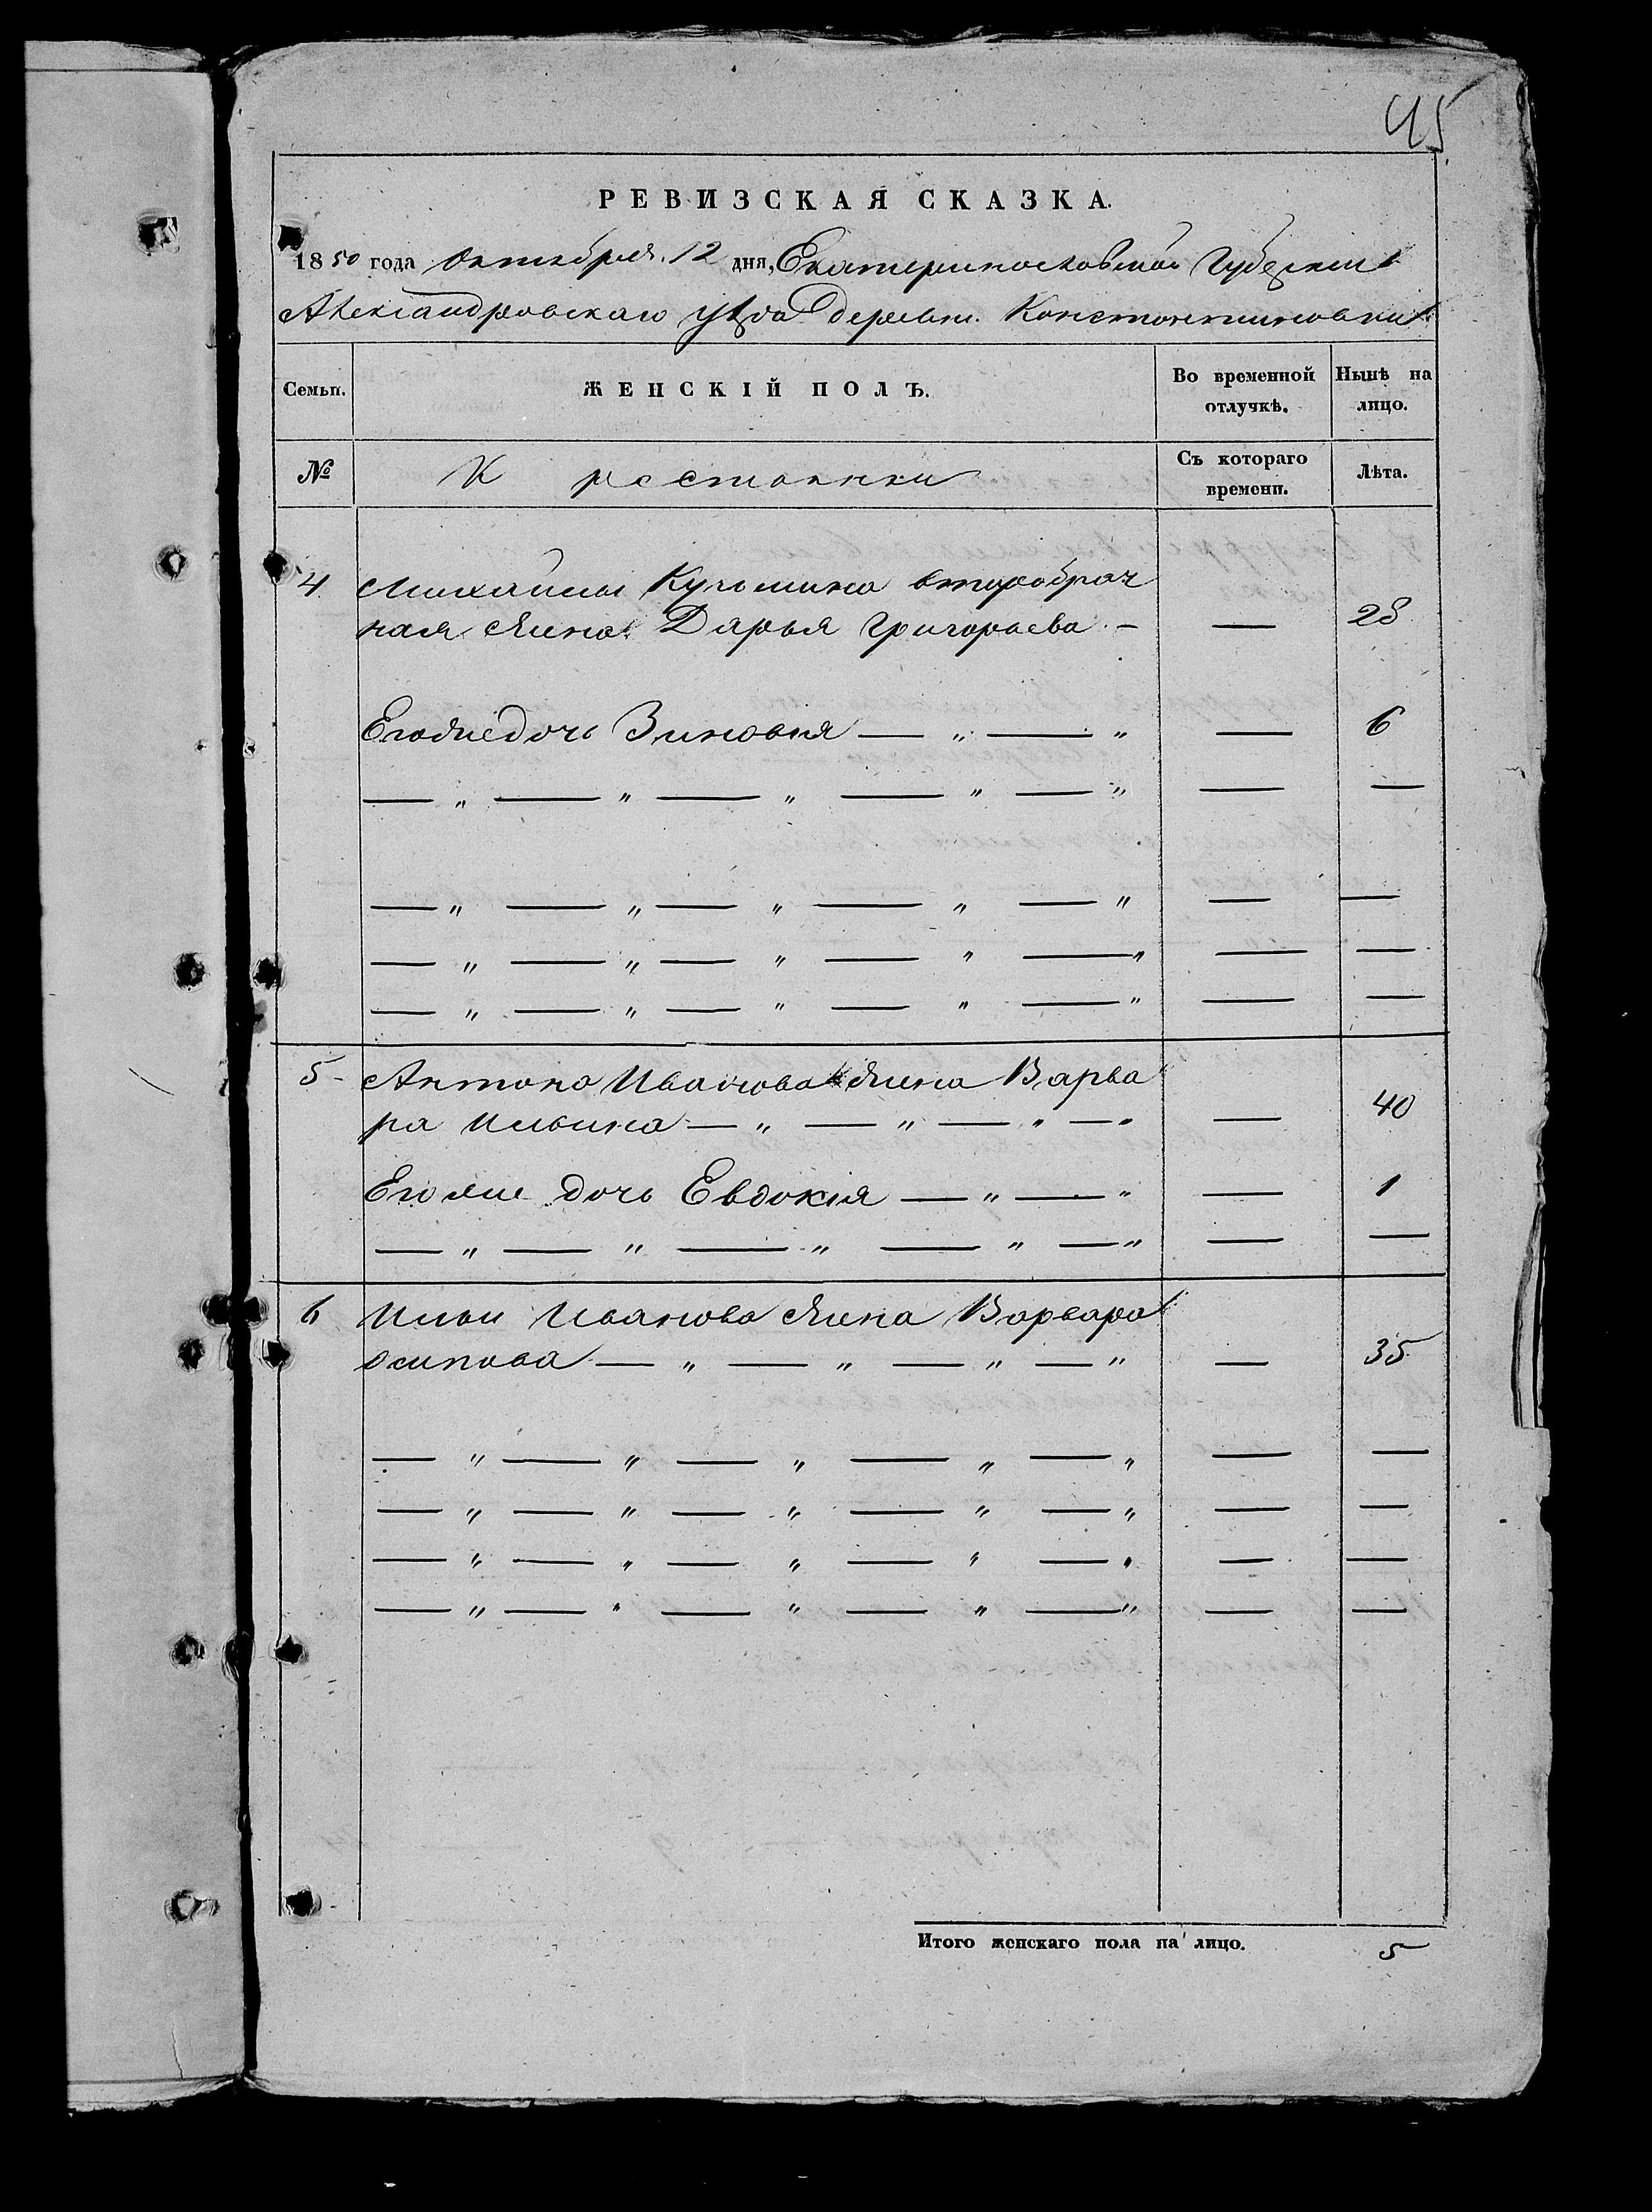 45
РЕВИЗСКАЯ СКАЗКА.
1850 года Октября 12 дня, Екатеринославской Губерніи
Александровскаго уѣзда деревни Константиновки
Семьи. ЖЕНСКІЙ ПОЛЪ. Во временной отлучкѣ. Нынѣ на лицо.
№ Крестьянки Съ котораго времени. Лѣта.
4. Михайлы Кузьмина второбрач
ная жена Дарья Григорьева — — 28
Его же дочь Зиновия — „ — „ — 6
— „ — „ — „ — „ — „ — —
— „ — „ — „ — „ — „ — —
— „ — „ — „ — „ — „ — —
— „ — „ — „ — „ — „ — —
5 Антона Иванова жена Варва
ра Ильина — „ — „ — „ — „ — 40
Его же дочь Евдокия — „ — „ — 1
— „ — „ — „ — „ — „ — —
6 Ильи Иванова жена Варвара
Осипова — „ — „ — „ — „ — 35
— „ — „ — „ — „ — „ — —
— „ — „ — „ — „ — „ — —
— „ — „ — „ — „ — „ — —
— „ — „ — „ — „ — „ — —
Итого женскаго пола на лицо. 5